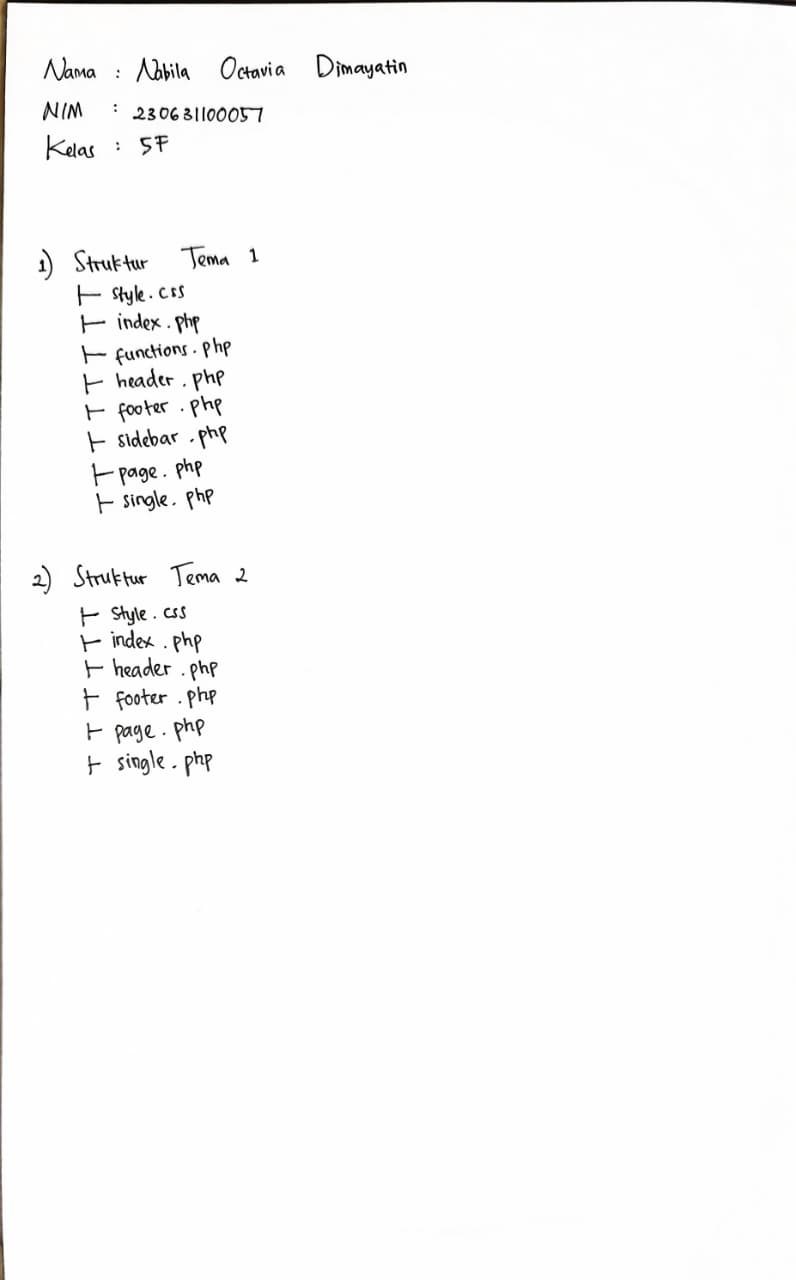 Nama : Nabila Octavia Dimayatin
NIM : 230631100057
Kelas : 5F
1) Struktur Tema 1
├ style.css
├ index.php
├ functions.php
├ header.php
├ footer.php
├ sidebar.php
├ page.php
├ single.php
2) Struktur Tema 2
├ style.css
├ index.php
├ header.php
├ footer.php
├ page.php
├ single.php